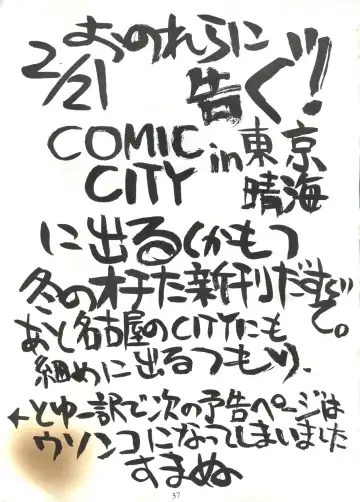 おのれらに
2/21 告ぐ!!
COMIC
CITY in東京
晴海
に出る(かも)
冬のオチた新刊だすぞ。
あと名古屋のCITYにも
細めに出るつもり.
←とゆー訳で次の予告ページは
ウソンコになってしまいました
すまぬ
37